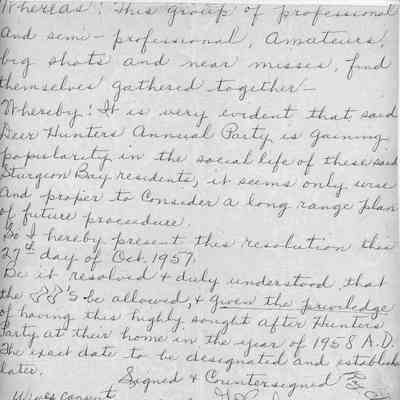 Whereas! This group of professional
and semi-professional, Amateurs,
big shots and near misses, find
themselves gathered together—
Whereby! It is very evident that said
Deer Hunters Annual Party is gaining
popularity in the social life of these said
Sturgeon Bay residents, it seems only wise
and proper to consider a long range plan
of future proceedure.
So I hereby present this resolution this
27th day of Oct. 1957.
Be it resolved & duly understood that
the 's be allowed, & given the priviledge
of having this highly sought after Hunters
Party at their home in the year of 1958 A.D.
The exact date to be designated and establish
later.
Signed & Countersigned
Wives Consent